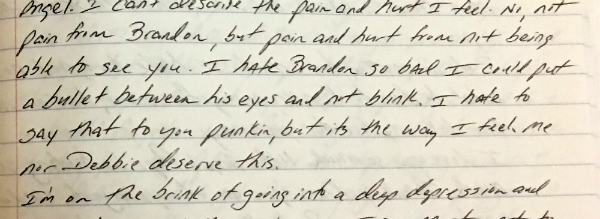 Angel. I can't describe the pain and hurt I feel. No, not
pain from Brandon, but pain and hurt from not being
able to see you. I hate Brandon so bad I could put
a bullet between his eyes and not blink. I hate to
say that to you punkin, but its the way I feel. me
nor Debbie deserve this.
I'm on the brink of going into a deep depression and